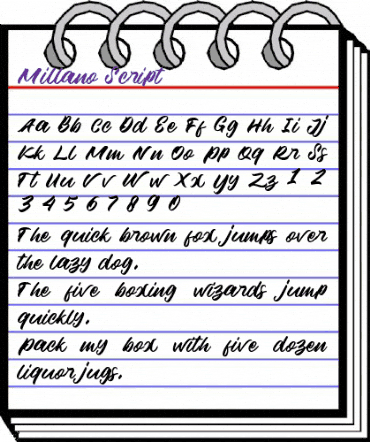 Millano Script
Aa Bb Cc Dd Ee Ff Gg Hh Ii Jj
Kk Ll Mm Nn Oo Pp Qq Rr Ss
Tt Uu Vv Ww Xx Yy Zz 1 2
3 4 5 6 7 8 9 0
The quick brown fox jumps over
the lazy dog.
The five boxing wizards jump
quickly.
Pack my box with five dozen
liquor jugs.